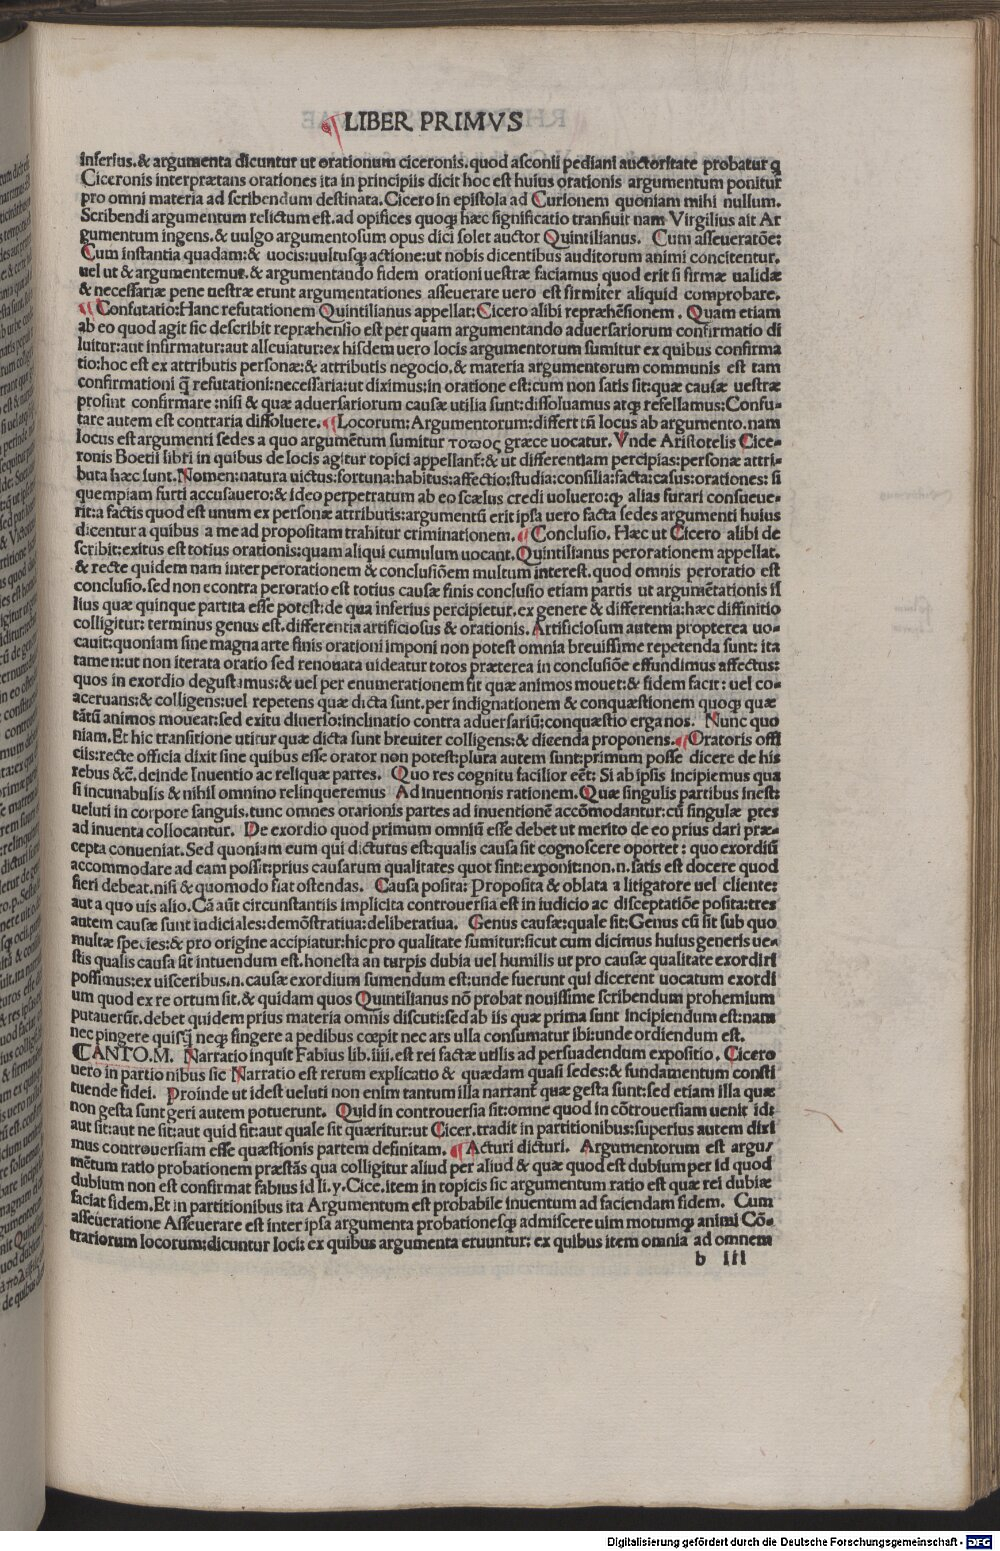 LIBER PRIMVS
inferius.& argumenta dicuntur ut orationum ciceronis.quod asconii pediani auctoritate probatur ꝗ
Ciceronis interprætans orationes ita in principiis dicit hoc est huius orationis argumentum ponitur
pro omni materia ad scribendum destinata.Cicero in epistola ad Curionem quoniam mihi nullum.
Scribendi argumentum relictum est.ad opifices quoqꝫ hæc significatio transiuit nam Virgilius ait Ar
gumentum ingens.& uulgo argumentosum opus dici solet auctor Quintilianus. Cum asseueratõe:
Cum instantia quadam:& uocis:uultusqꝫ actione:ut nobis dicentibus auditorum animi concitentur.
uel ut & argumentemur.& argumentando fidem orationi uestræ faciamus quod erit si firmæ ualidæ
& necessariæ pene uestræ erunt argumentationes asseuerare uero est firmiter aliquid comprobare.
Confutatio:Hanc refutationem Quintilianus appellat:Cicero alibi repræhẽsionem. Quam etiam
ab eo quod agit sic describit repræhensio est per quam argumentando aduersariorum confirmatio di
luitur:aut infirmatur:aut alleuiatur:ex hisdem uero locis argumentorum sumitur ex quibus confirma
tio:hoc est ex attributis personæ:& attributis negocio.& materia argumentorum communis est tam
confirmationi q̃ refutationi:necessaria:ut diximus:in oratione est:cum non satis sit:quæ causæ uestræ
prosint confirmare:nisi & quæ aduersariorum causæ utilia sunt:dissoluamus atqꝫ refellamus:Confu-
tare autem est contraria dissoluere. Locorum:Argumentorum:differt tñ locus ab argumento.nam
locus est argumenti sedes a quo argumẽtum sumitur τοπος græce uocatur. Vnde Aristotelis Cice-
ronis Boetii libri in quibus de locis agitur topici appellanť:& ut differentiam percipias:personæ attri-
buta hæc sunt.Nomen:natura uictus:fortuna:habitus:affectio:studia:consilia:facta:casus:orationes: si
quempiam furti accusauero:& ideo perpetratum ab eo scælus credi uoluero:ꝙ alias furari consueue-
rit:a factis quod est unum ex personæ attributis:argumentũ erit ipsa uero facta sedes argumenti huius
dicentur a quibus a me ad propositam trahitur criminationem. Conclusio. Hæc ut Cicero alibi de
scribit:exitus est totius orationis:quam aliqui cumulum uocant.Quintilianus perorationem appellat.
& recte quidem nam inter perorationem & conclusiõem multum interest.quod omnis peroratio est
conclusio.sed non econtra peroratio est totius causæ finis conclusio etiam partis ut argumẽtationis il
lius quæ quinque partita esse potest:de qua inferius percipietur.ex genere & differentia:hæc diffinitio
colligitur: terminus genus est.differentia artificiosus & orationis. Artificiosum autem propterea uo-
cauit:quoniam sine magna arte finis orationi imponi non potest omnia breuissime repetenda sunt: ita
tamen:ut non iterata oratio sed renouata uideatur totos præterea in conclusiõe effundimus affectus:
quos in exordio degustamus:& uel per enumerationem fit quæ animos mouet:& fidem facit: uel co-
aceruans:& colligens:uel repetens quæ dicta sunt.per indignationem & conquæstionem quoqꝫ quæ
tãtũ animos moueat:sed exitu diuerso:inclinatio contra aduersariũ:conquæstio erga nos. Nunc quo
niam.Et hic transitione utitur quæ dicta sunt breuiter colligens:& dicenda proponens. Oratoris offi
ciis:recte officia dixit sine quibus esse orator non potest:plura autem sunt:primum posse dicere de his
rebus &c̃. deinde Inuentio ac reliquæ partes. Quo res cognitu facilior eẽt: Si ab ipsis incipiemus qua
si incunabulis & nihil omnino relinqueremus Ad inuentionis rationem.Quæ singulis partibus inest:
ueluti in corpore sanguis.tunc omnes orationis partes ad inuentionẽ accõmodantur:cũ singulæ ptes
ad inuenta collocantur. De exordio quod primum omniũ esse debet ut merito de eo prius dari præ-
cepta conueniat.Sed quoniam eum qui dicturus est:qualis causa sit cognoscere oportet: quo exordiũ
accommodare ad eam possit:prius causarum qualitates quot sint:exponit:non.n.satis est docere quod
fieri debeat.nisi & quomodo fiat ostendas. Causa posita: Proposita & oblata a litigatore uel cliente:
aut a quo uis alio.Cã aũt circunstantiis implicita controuersia est in iudicio ac disceptatiõe posita:tres
autem causæ sunt iudiciales:demõstratiua:deliberatiua. Genus causæ:quale sit:Genus cũ sit sub quo
multæ species:& pro origine accipiatur:hic pro qualitate sumitur:sicut cum dicimus huius generis ue-
stis qualis causa sit intuendum est.honesta an turpis dubia uel humilis ut pro causæ qualitate exordiri
possimus:ex uisceribus.n.causæ exordium sumendum est:unde fuerunt qui dicerent uocatum exordi
um quod ex re ortum sit.& quidam quos Quintilianus nõ probat nouissime scribendum prohemium
putauerũt.debet quidem prius materia omnis discuti:sed ab iis quæ prima sunt incipiendum est:nam
nec pingere quisq̃ neqꝫ fingere a pedibus cœpit nec ars ulla consumatur ibi:unde ordiendum est.
CANTO.M. Narratio inquit Fabius lib.iiii.est rei factæ utilis ad persuadendum expositio. Cicero
uero in partionibus sic Narratio est rerum explicatio & quædam quasi sedes:& fundamentum consti
tuende fidei. Proinde ut idest ueluti non enim tantum illa narranť quæ gesta sunt:sed etiam illa quæ
non gesta sunt geri autem potuerunt. Quid in controuersia sit:omne quod in cõtrouersiam uenit id:
aut sit:aut ne sit:aut quid sit:aut quale sit quæritur:ut Cicer.tradit in partitionibus:superius autem dixi
mus controuersiam esse quæstionis partem definitam. Acturi dicturi. Argumentorum est argu-
mẽtum ratio probationem præstãs qua colligitur aliud per aliud & quæ quod est dubium per id quod
dubium non est confirmat fabius id li.y.Cice.item in topicis sic argumentum ratio est quæ rei dubiæ
faciat fidem.Et in partitionibus ita Argumentum est probabile inuentum ad faciendam fidem. Cum
asseueratione Asseuerare est inter ipsa argumenta probationesqꝫ admiscere uim motumqꝫ animi Cõ-
trariorum locorum:dicuntur loci: ex quibus argumenta eruuntur: ex quibus item omnia ad omnem
b iii
Digitalisierung gefördert durch die Deutsche Forschungsgemeinschaft - DFG